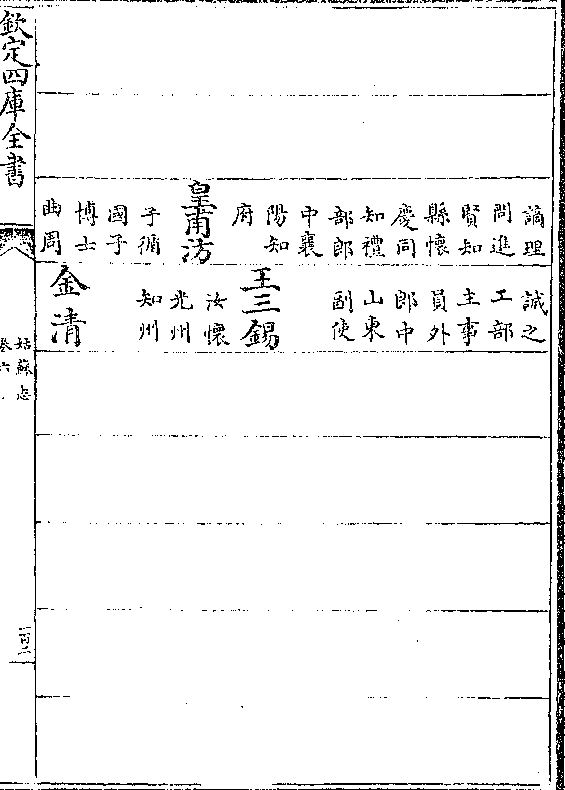 謫理
問進
賢知
縣懷
慶同
知禮
部郎
中襄
陽知
府
皇甫汸
子循
國子
博士
曲周
誠之
工部
主事
員外
郎中
山東
副使
王三錫
汝懷
光州
知州
金清
欽定四庫全書
姑蘇志
卷六